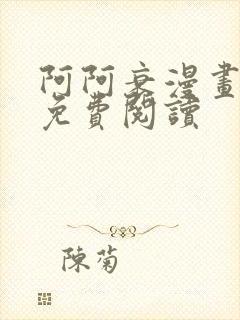 阿阿衰漫畫
免費閱讀
陳菊